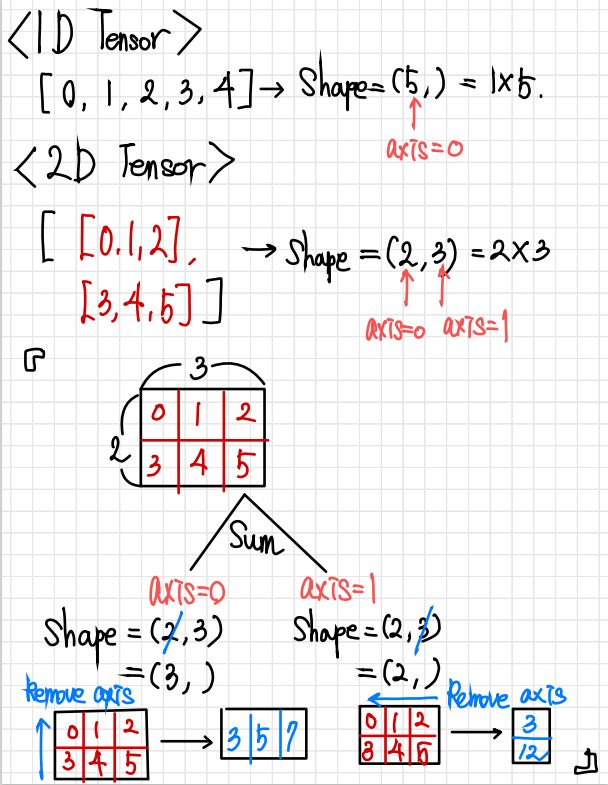 <1D Tensor>
[0, 1, 2, 3, 4] → Shape = (5, ) = 1×5.
axis=0
<2D Tensor>
[ [0.1,2],
[3,4,5] ] → Shape = (2,3) = 2×3
axis=0 axis=1
『
3
2
0 1 2
3 4 5
Sum
axis=0 axis=1
Shape = (2,3) Shape = (2,3)
= (3, ) = (2, )
Remove axis Remove axis
0 1 2
3 4 5
→ 3 5 7
0 1 2
3 4 5
→ 3
12
』